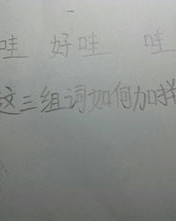 哇 好哇 哇
这三组词如何加拼